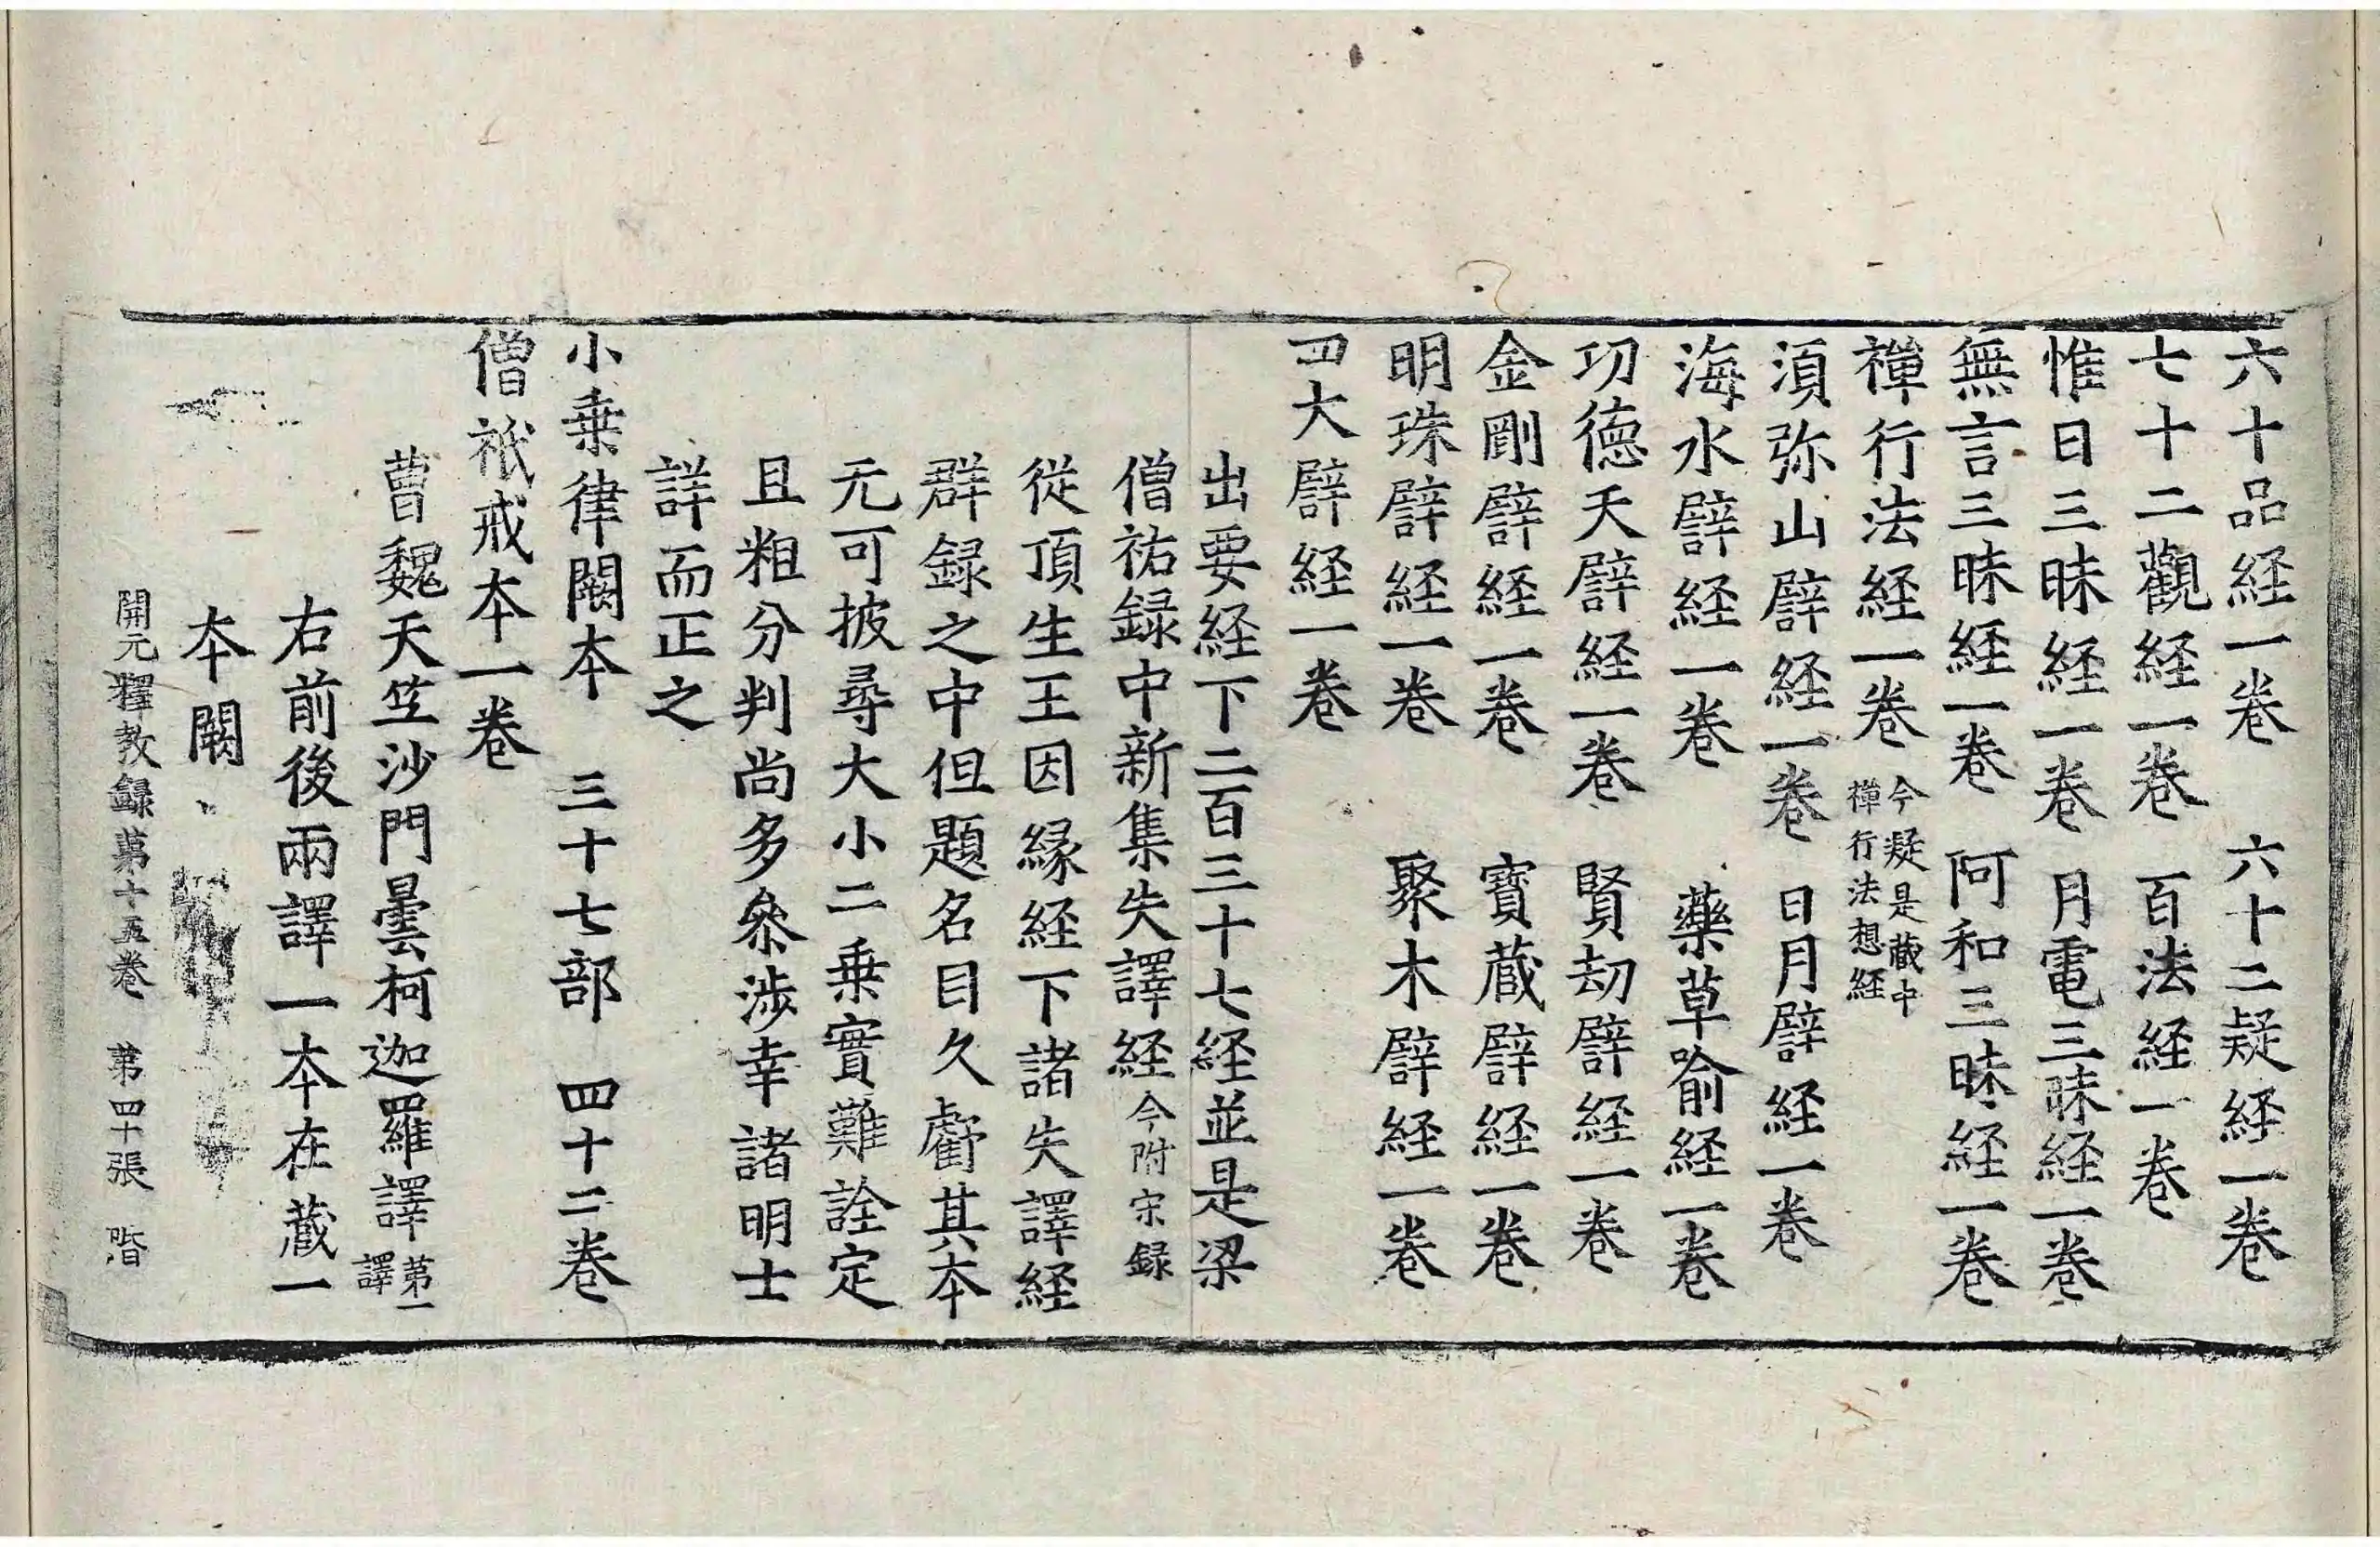 六十品経一卷　六十二疑経一卷
七十二觀経一卷　百法経一卷
惟日三昧経一卷　月電三昧経一卷
無言三昧経一卷　阿和三昧経一卷
禪行法経一卷 今疑是蔵中
禪行法想経
須弥山譬経一卷　日月譬経一卷
海水譬経一卷　藥草喻経一卷
功德天譬経一卷　賢劫譬経一卷
金剛譬経一卷　寶蔵譬経一卷
明珠譬経一卷　聚木譬経一卷
四大譬経一卷
出要経下二百三十七経並是梁
僧祐録中新集失譯経今附宋録
從頂生王因縁経下諸失譯経
群録之中但題名目久虧其本
无可披尋大小二乗實難詮定
且粗分判尚多叅涉幸諸明士
詳而正之
小乗律闕本　三十七部　四十二卷
僧祇戒本一卷
曹魏天竺沙門曇柯迦羅譯 第一
譯
右前後兩譯一本在蔵一
本闕
開元釋教録第十五卷　第四十張　階